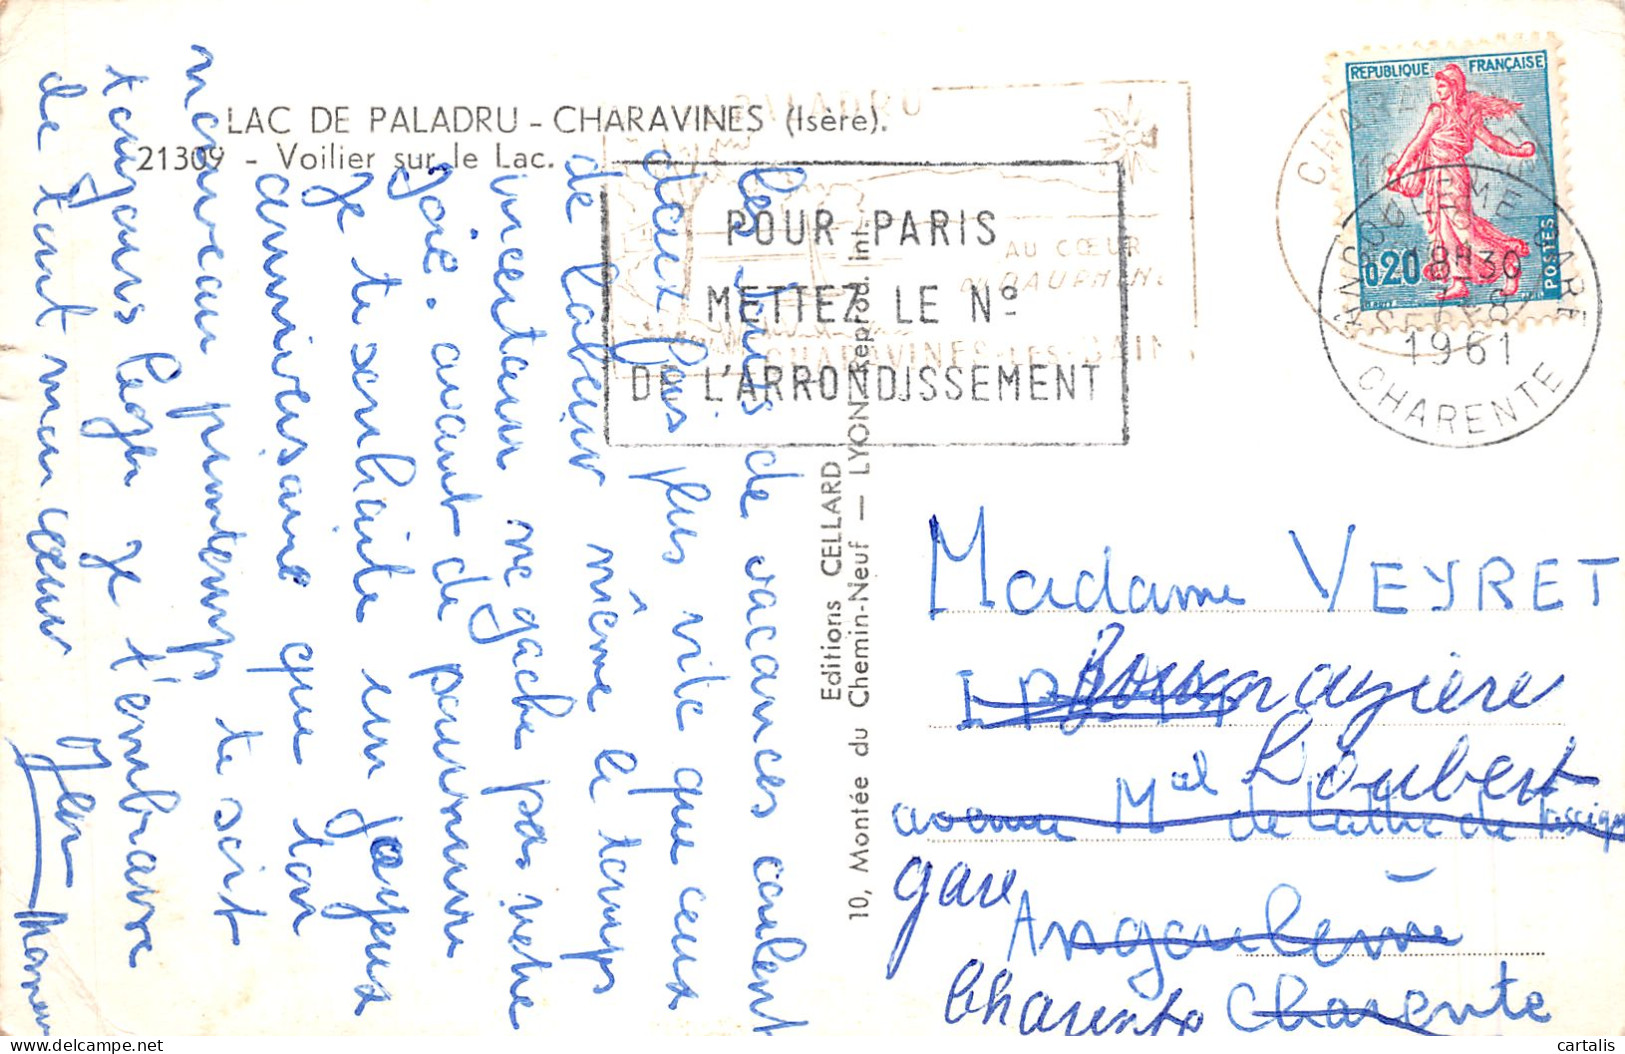 LAC DE PALADRU - CHARAVINES (Isère).
21309 - Voilier sur le Lac.
REPUBLIQUE FRANÇAISE
0,20
POSTES
PALADRU
AU CŒUR
du DAUPHINÉ
CHARAVINES-LES-BAINS
POUR PARIS
METTEZ LE Nº
DE L'ARRONDISSEMENT
ANGOULEME GARE
18H30
1961
CHARENTE
Editions CELLARD
10, Montée du Chemin-Neuf — LYON Reprod. int.
les jours de vacances coulent
deux fois plus vite que ceux
de labeur même le temps
incertain ne gache pas notre
joie. avant de
Je te souhaite un joyeux
anniversaire que ton
nouveau printemps te soit
toujours léger je t'embrasse
de tout mon cœur
Madame VEYRET
Loubert
avenue Mal de Lattre de Tassigny
gare
Angoulême
Charente Charente
cartalis.com